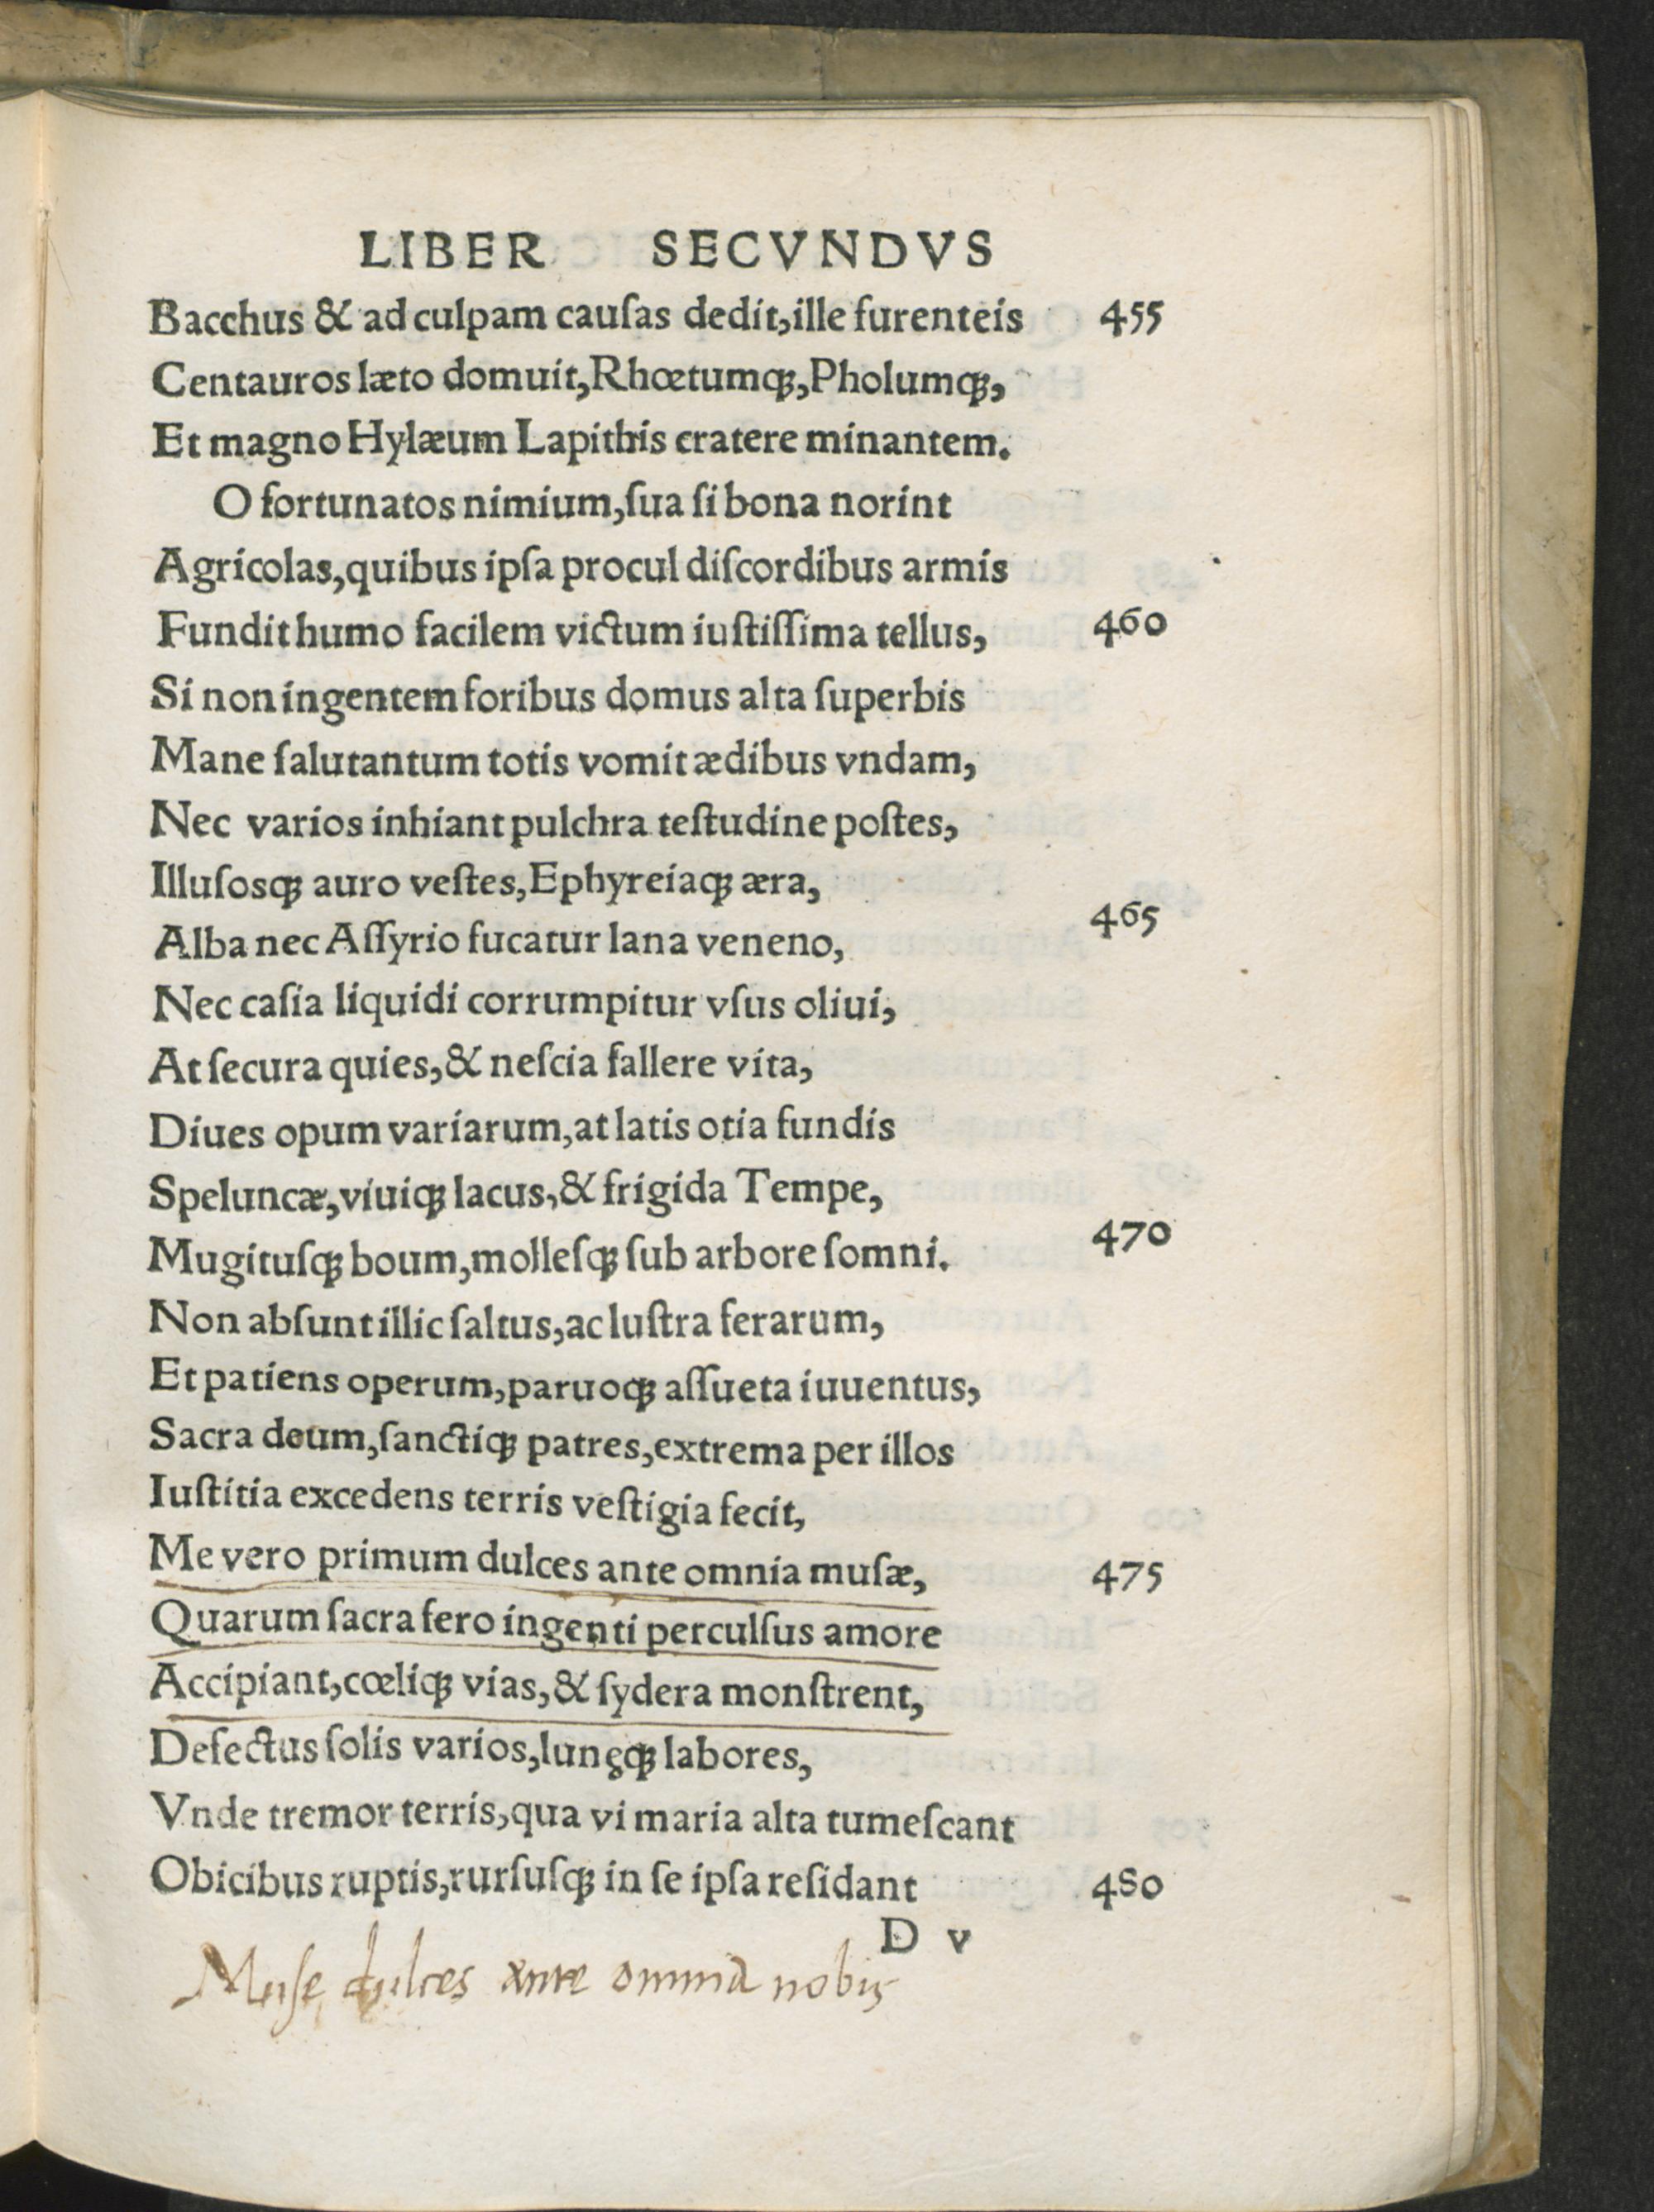 LIBER SECVNDVS
Bacchus & ad culpam cauſas dedit, ille furenteis 455
Centauros læto domuit, Rhœtumq́;, Pholumq́;,
Et magno Hylæum Lapithis cratere minantem.
O fortunatos nimium, ſua ſi bona norint
Agricolas, quibus ipſa procul diſcordibus armis
Fundit humo facilem victum iuſtiſſima tellus, 460
Si non ingentem foribus domus alta ſuperbis
Mane ſalutantum totis vomit ædibus vndam,
Nec varios inhiant pulchra teſtudine poſtes,
Illuſosq; auro veſtes, Ephyreiaq; æra,
Alba nec Aſſyrio fucatur lana veneno, 465
Nec caſia liquidi corrumpitur vſus oliui,
At ſecura quies, & neſcia fallere vita,
Diues opum variarum, at latis otia fundis
Speluncæ, viuiq; lacus, & frigida Tempe,
Mugituſq; boum, molleſq; ſub arbore ſomni. 470
Non abſunt illic ſaltus, ac luſtra ferarum,
Et patiens operum, paruoq; aſſueta iuuentus,
Sacra deum, ſanctiq; patres, extrema per illos
Iuſtitia excedens terris veſtigia fecit,
Me vero primum dulces ante omnia muſæ, 475
Quarum ſacra fero ingenti perculſus amore
Accipiant, cœliq; vias, & ſydera monſtrent,
Defectus ſolis varios, lunęq; labores,
Vnde tremor terris, qua vi maria alta tumeſcant
Obicibus ruptis, rurſuſq; in ſe ipſa reſidant 480
D v
Muſe dulces ante omnia nobis